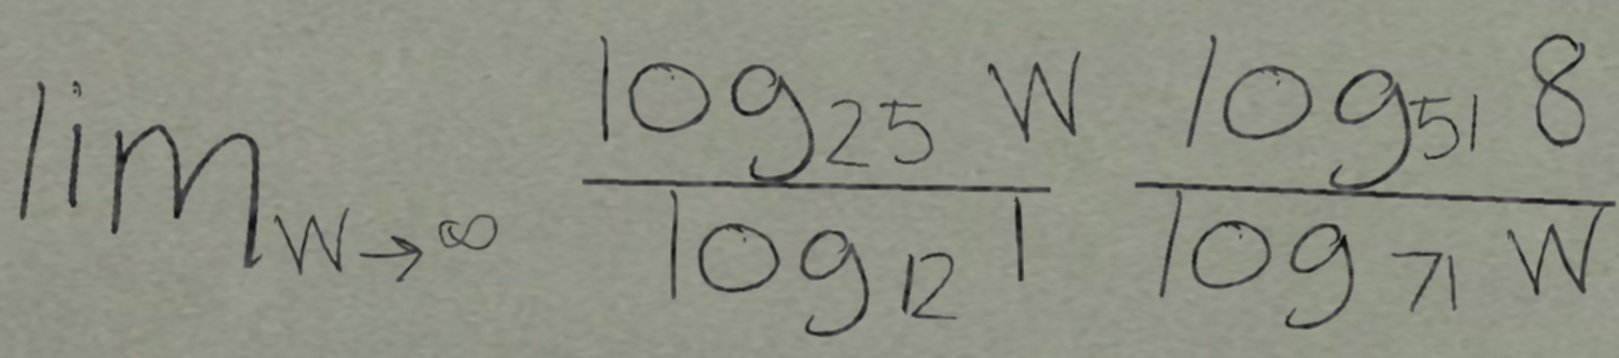 \lim_{w \to \infty} \frac{\log_{25} w}{\log_{12} 1} \frac{\log_{51} 8}{\log_{71} w}